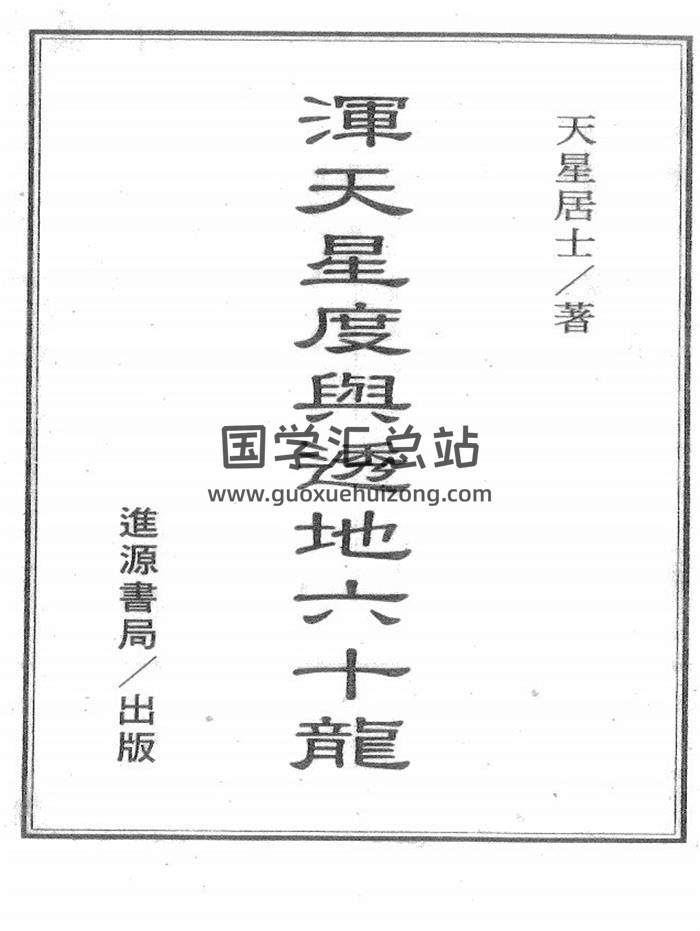 天星居士/著
渾天星度與透地六十龍
進源書局/出版
国学汇总站
www.guoxuehuizong.com